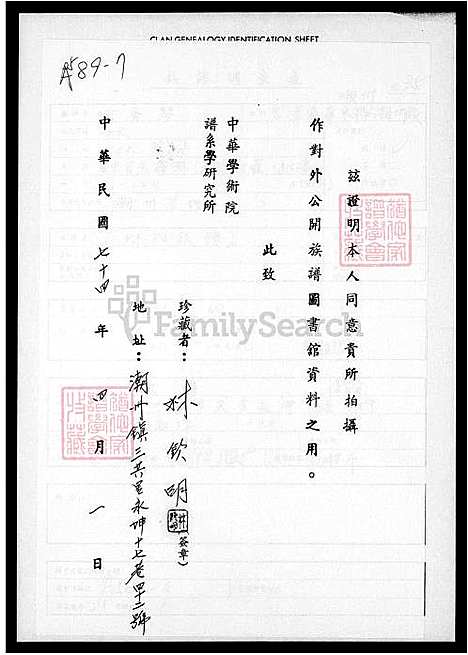 CLAN GENEALOGY IDENTIFICATION SHEET
A589-7
茲證明本人同意貴所拍攝
作對外公開族譜圖書館資料之用。
此致
中華學術院
譜系學研究所
珍藏者：林欽明（簽章）
地址：潮州鎮三共里永坤十七巷四十二號
中華民國七十四年四月一日
FamilySearch